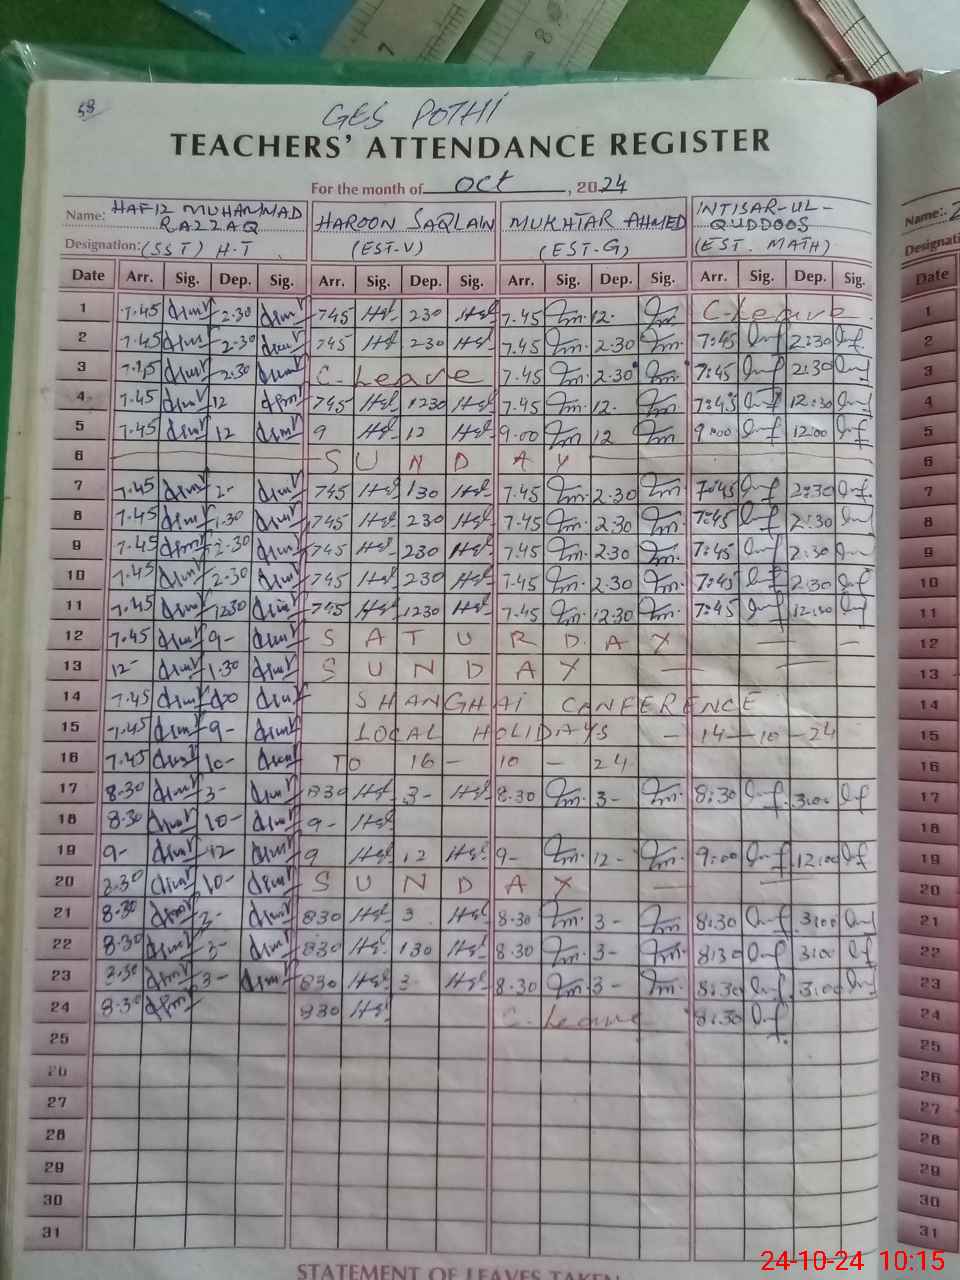 7
8
58
GES POTHI
TEACHERS' ATTENDANCE REGISTER
For the month of oct, 2024
Name: HAFIZ MUHAMMAD RAZZAQ HAROON SAQLAIN MUKHTAR AHMED INTISAR-UL-QUDDOOS
Designation: (SST) H.T (EST-V) (EST-G) (EST. MATH)
Date Arr. Sig. Dep. Sig. Arr. Sig. Dep. Sig. Arr. Sig. Dep. Sig. Arr. Sig. Dep. Sig.
1 7.45 2.30 745 230 7.45 12- C-Leave
2 7.45 2-30 745 230 7.45 2.30 7:45 2:30
3 7.45 2.30 C-Leave 7.45 2.30 7:45 2:30
4 7.45 12 745 1230 7.45 12- 7:45 12:30
5 7.45 12 9 12 9.00 12 9:00 12:00
6 SUNDAY
7 7.45 2- 745 130 7.45 2.30 7:45 2:30
8 7.45 1.30 745 230 7.45 2.30 7:45 2:30
9 7.45 2-30 745 230 7.45 2.30 7:45 2:30
10 7.45 2-30 745 230 7.45 2.30 7:45 2:30
11 7.45 1230 745 1230 7.45 12.30 7:45
12 7.45 9- SATURDAY
13 12- 1.30 SUNDAY
14 7.45 SHANGHAI CANFERENCE
15 7.45 9- LOCAL HOLIDAYS - 14-10-24
16 7.45 10- TO 16-10-24
17 8-30 3- 830 3- 8.30 3- 8:30 3:00
18 8-30 10- 9-
19 9- 12 9 12 9- 12- 9:00 12:00
20 10- SUNDAY
21 8-30 3- 830 3 8.30 3- 8:30 3:00
22 8-30 3- 830 130 8.30 3- 8:30 3:00
23 3- 830 3 8.30 3- 8:30 3:00
24 8-30 830 C-Leave 8:30
25
26
27
28
29
30
31
STATEMENT OF LEAVES TAKEN
Name:
Designati
Date
1
2
3
4
5
6
7
8
9
10
11
12
13
14
15
16
17
18
19
20
21
22
23
24
25
26
27
28
29
30
31
24-10-24 10:15